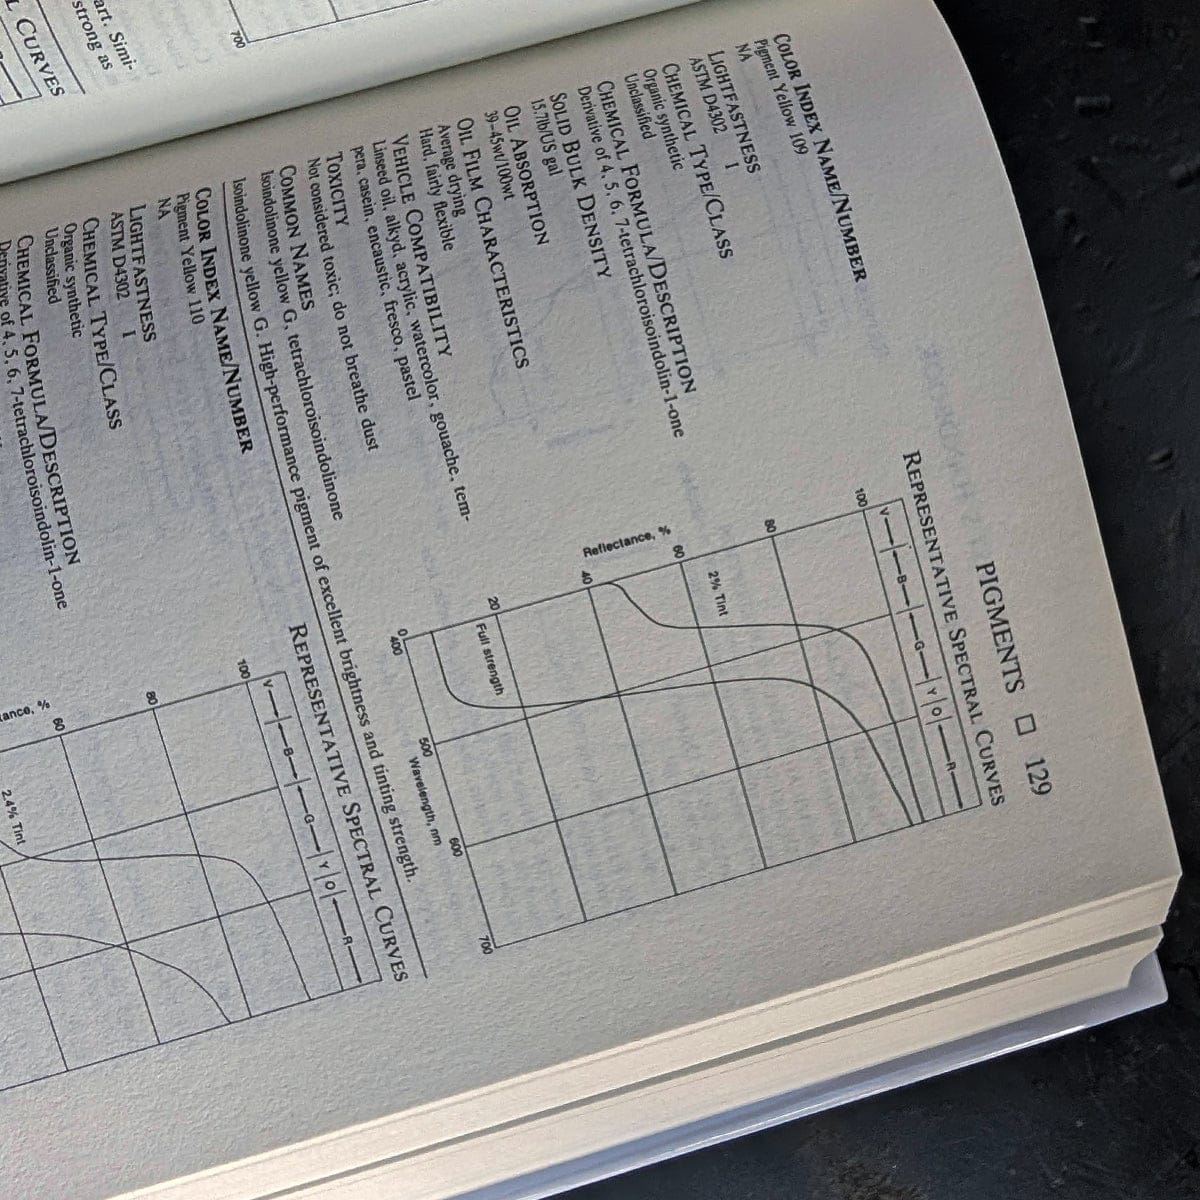 PIGMENTS □ 129
COLOR INDEX NAME/NUMBER
Pigment Yellow 109
NA
LIGHTFASTNESS
ASTM D4302 I
CHEMICAL TYPE/CLASS
Organic synthetic
Unclassified
CHEMICAL FORMULA/DESCRIPTION
Derivative of 4, 5, 6, 7-tetrachloroisoindolin-1-one
SOLID BULK DENSITY
15.7lb/US gal
OIL ABSORPTION
39–45wt/100wt
OIL FILM CHARACTERISTICS
Average drying
Hard, fairly flexible
VEHICLE COMPATIBILITY
Linseed oil, alkyd, acrylic, watercolor, gouache, tem-
pera, casein, encaustic, fresco, pastel
TOXICITY
Not considered toxic; do not breathe dust
COMMON NAMES
Isoindolinone yellow G, tetrachloroisoindolinone
Isoindolinone yellow G. High-performance pigment of excellent brightness and tinting strength.
REPRESENTATIVE SPECTRAL CURVES
V B G Y O R
100
80
60
40
20
0
Reflectance, %
2% Tint
Full strength
400 500 600 700
Wavelength, nm
COLOR INDEX NAME/NUMBER
Pigment Yellow 110
NA
LIGHTFASTNESS
ASTM D4302 I
CHEMICAL TYPE/CLASS
Organic synthetic
Unclassified
CHEMICAL FORMULA/DESCRIPTION
Derivative of 4, 5, 6, 7-tetrachloroisoindolin-1-one
REPRESENTATIVE SPECTRAL CURVES
V B G Y O R
100
80
60
tance, %
2.4% Tint
700
art. Simi-
strong as
CURVES